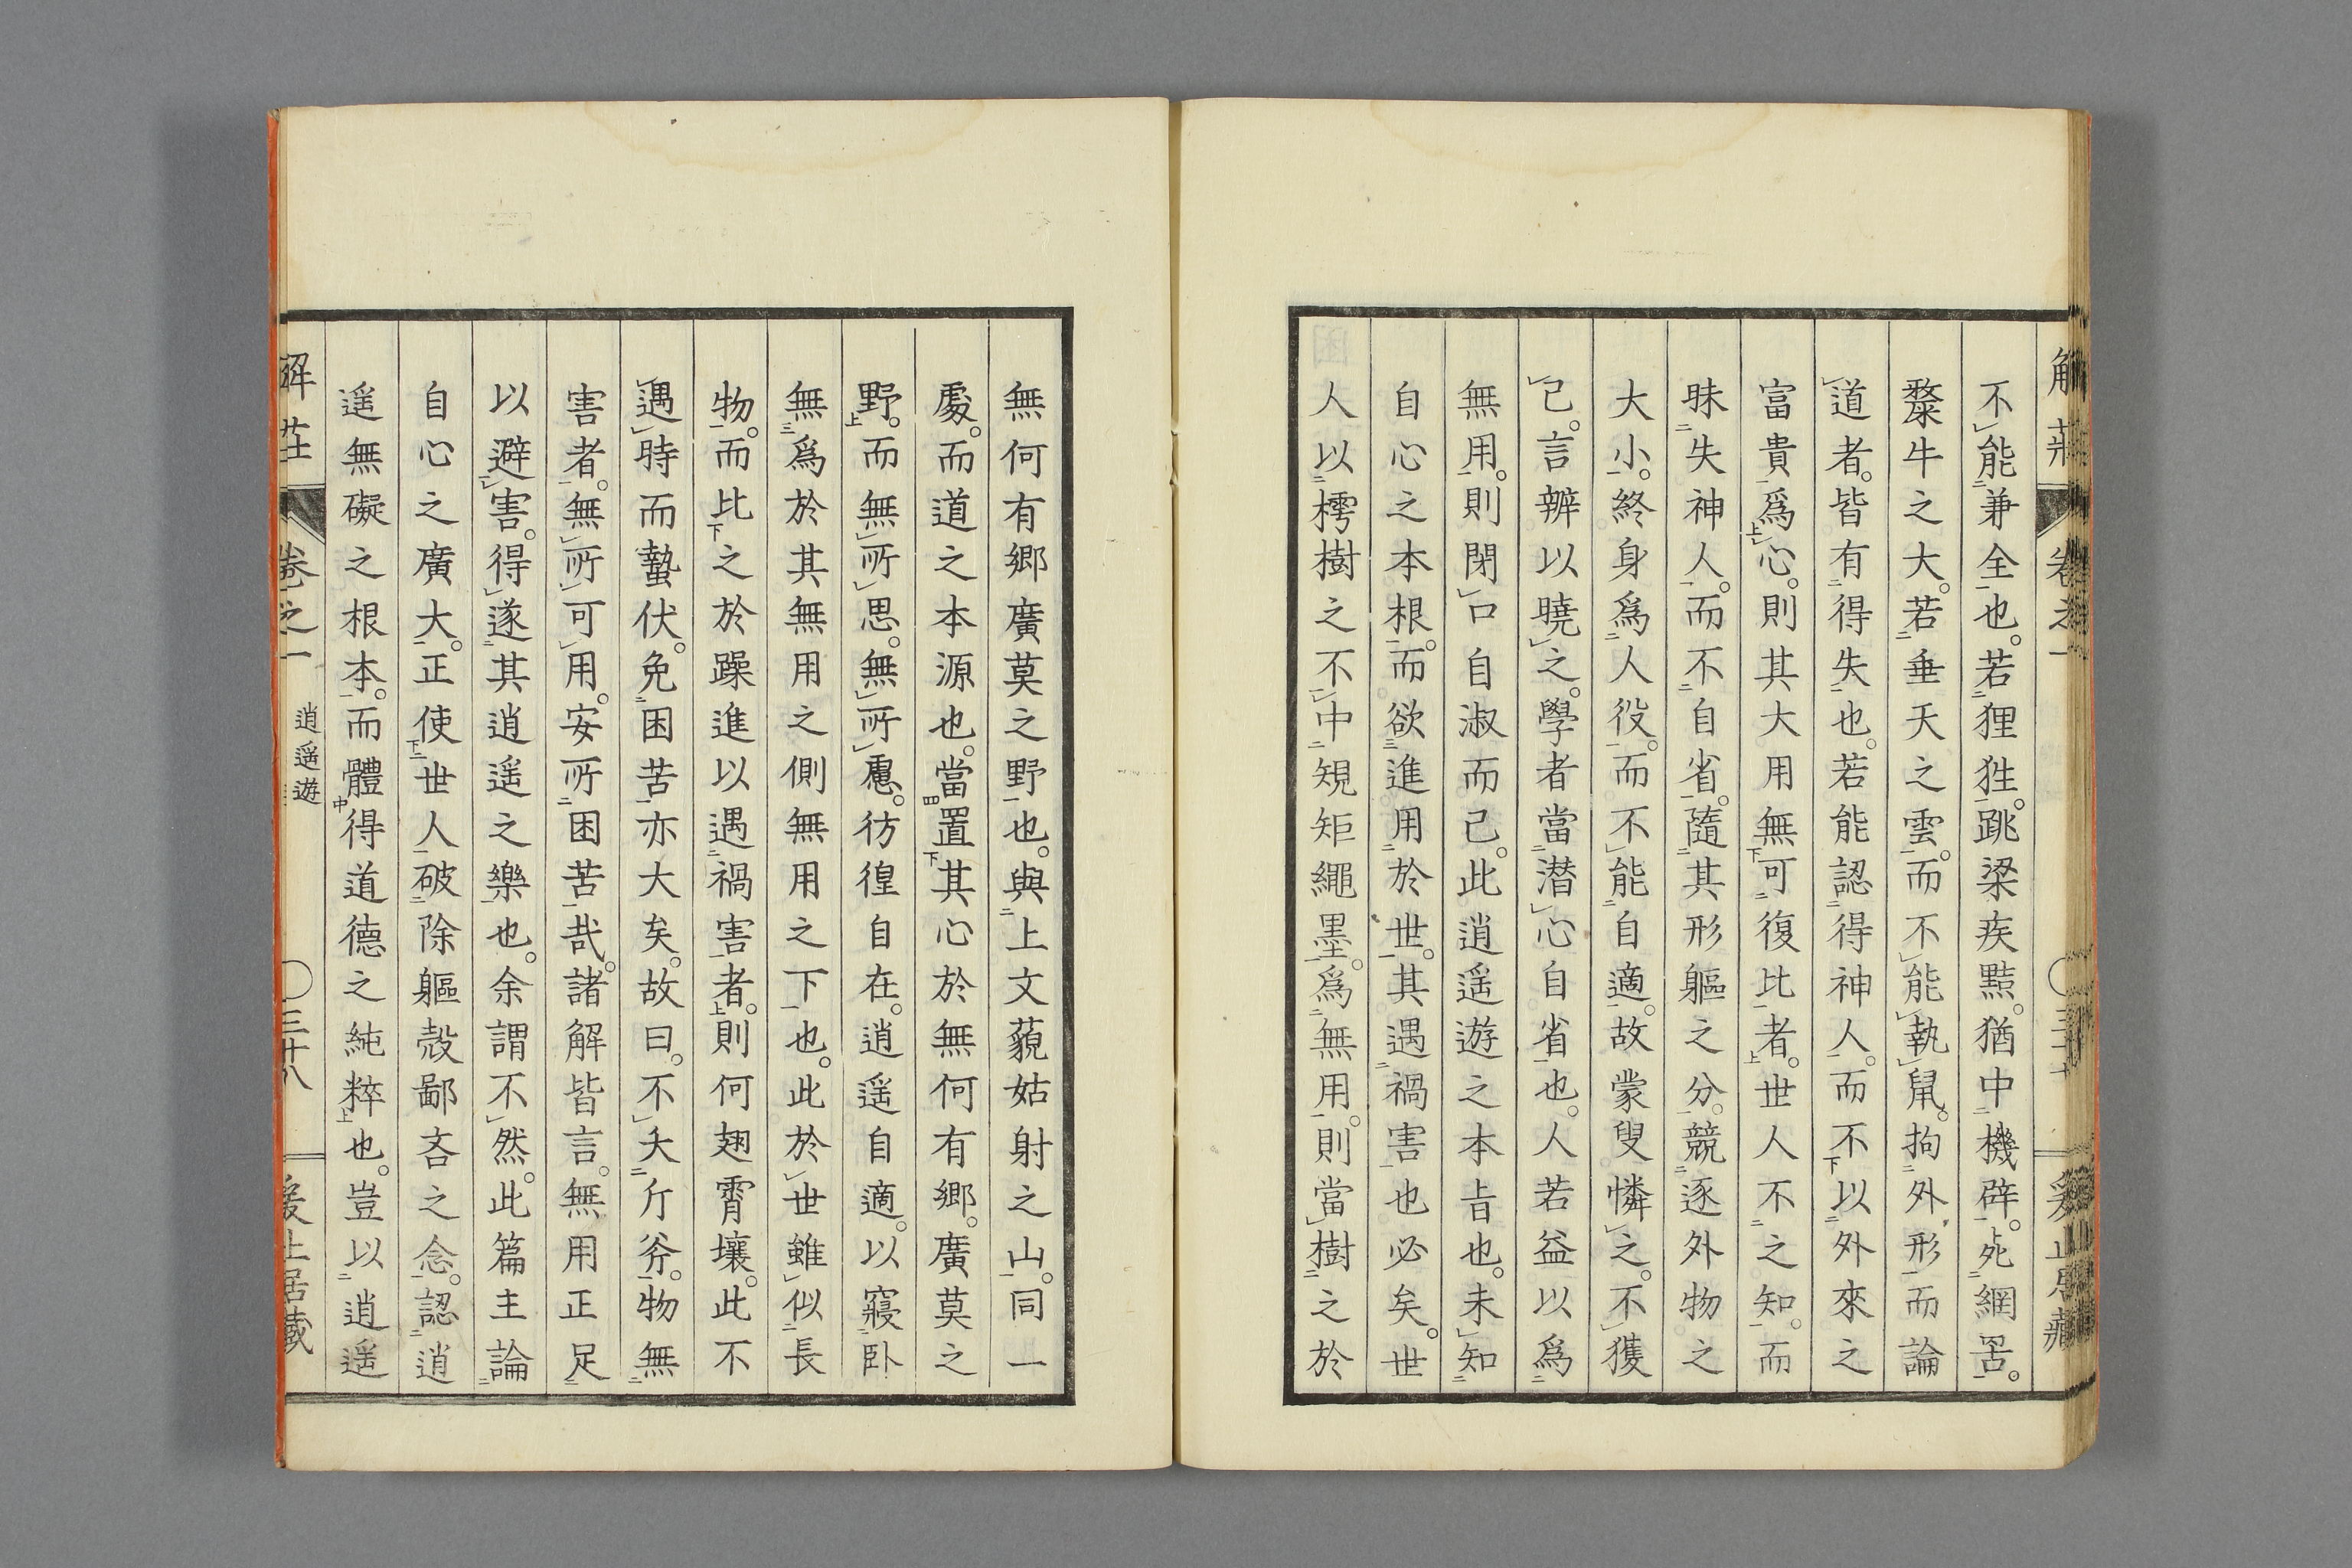 不能兼全也。若狸狌。跳梁疾黠。猶中機辟。死網罟。
斄牛之大。若垂天之雲。而不能執鼠。拘外形而論
道者。皆有得失也。若能認得神人。而不以外來之
富貴爲心。則其大用無可復比者。世人不之知。而
昧失神人。而不自省。隨其形軀之分。競逐外物之
大小。終身爲人役。而不能自適。故蒙叟憐之。不獲
已。言辨以曉之。學者當潜心自省也。人若益以爲
無用。則閉口自淑而已。此逍遥遊之本旨也。未知
自心之本根。而欲進用於世。其遇禍害也必矣。世
人以樗樹之不中規矩繩墨。爲無用。則當樹之於
無何有郷廣莫之野也。與上文藐姑射之山。同一
處。而道之本源也。當置其心於無何有郷。廣莫之
野。而無所思。無所慮。彷徨自在。逍遥自適。以寢卧
無爲於其無用之側無用之下也。此於世雖似長
物。而比之於躁進以遇禍害者。則何翅霄壤。此不
遇時而蟄伏。免困苦亦大矣。故曰。不夭斤斧。物無
害者。無所可用。安所困苦哉。諸解皆言。無用正足
以避害。得遂其逍遥之樂也。余謂不然。此篇主論
自心之廣大。正使世人破除軀殻鄙吝之念。認逍
遥無礙之根本。而體得道德之純粹也。豈以逍遥
解莊 卷之一 逍遥遊 〇三十八